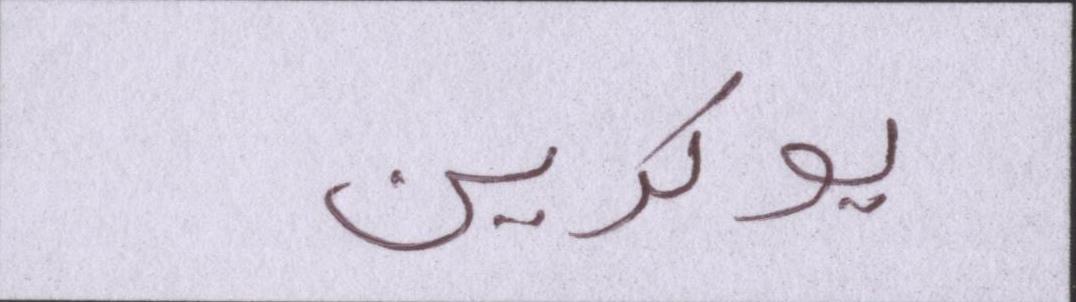 یوکرین